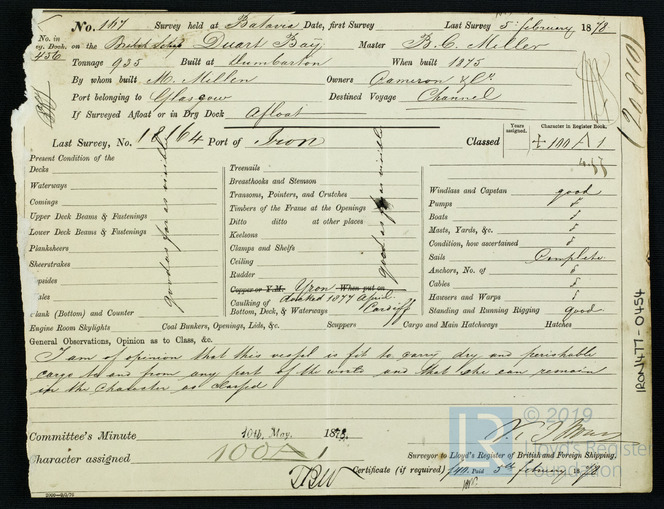 No. 167 Survey held at Batavia Date, first Survey Last Survey 5th february 1878
No. in Reg. Book. on the British Ship Duart Bay Master B. C. Miller
456 Tonnage 935 Built at Dumbarton When built 1875
By whom built M. Millen Owners Cameron & Co.
Port belonging to Glasgow Destined Voyage Channel
If Surveyed Afloat or in Dry Dock Afloat
(20810)
Last Survey, No. 18164 Port of Iron Classed + 100 A 1
Years assigned. Character in Register Book.
4.77
Present Condition of the
Decks
Waterways
Comings
Upper Deck Beams & Fastenings
Lower Deck Beams & Fastenings
Planksheers
Sheerstrakes
Topsides
Wales
Plank (Bottom) and Counter
good as far as visible
Treenails
Breasthooks and Stemson
Transoms, Pointers, and Crutches
Timbers of the Frame at the Openings
Ditto ditto at other places
Keelsons
Clamps and Shelfs
Ceiling
Rudder
Copper or Y.M. Iron When put on
Caulking of docked 1877 April
Bottom, Deck, & Waterways Cardiff
good as far as visible
Windlass and Capstan good
Pumps d
Boats d
Masts, Yards, &c. d
Condition, how ascertained d
Sails Complete
Anchors, No. of d
Cables d
Hawsers and Warps d
Standing and Running Rigging good
Engine Room Skylights Coal Bunkers, Openings, Lids, &c. Scuppers Cargo and Main Hatchways Hatches
General Observations, Opinion as to Class, &c.
I am of opinion that this vessel is fit to carry dry and perishable
cargo to and from any part of the world and that she can remain
in the character as classed
Committee's Minute 10th May. 1878.
Character assigned 100 A 1
Surveyor to Lloyd's Register of British and Foreign Shipping.
Certificate (if required) Paid 5th february 1878
2000—8/2/76
IRON477-0454
© 2019
Lloyd's Register
Foundation
LR